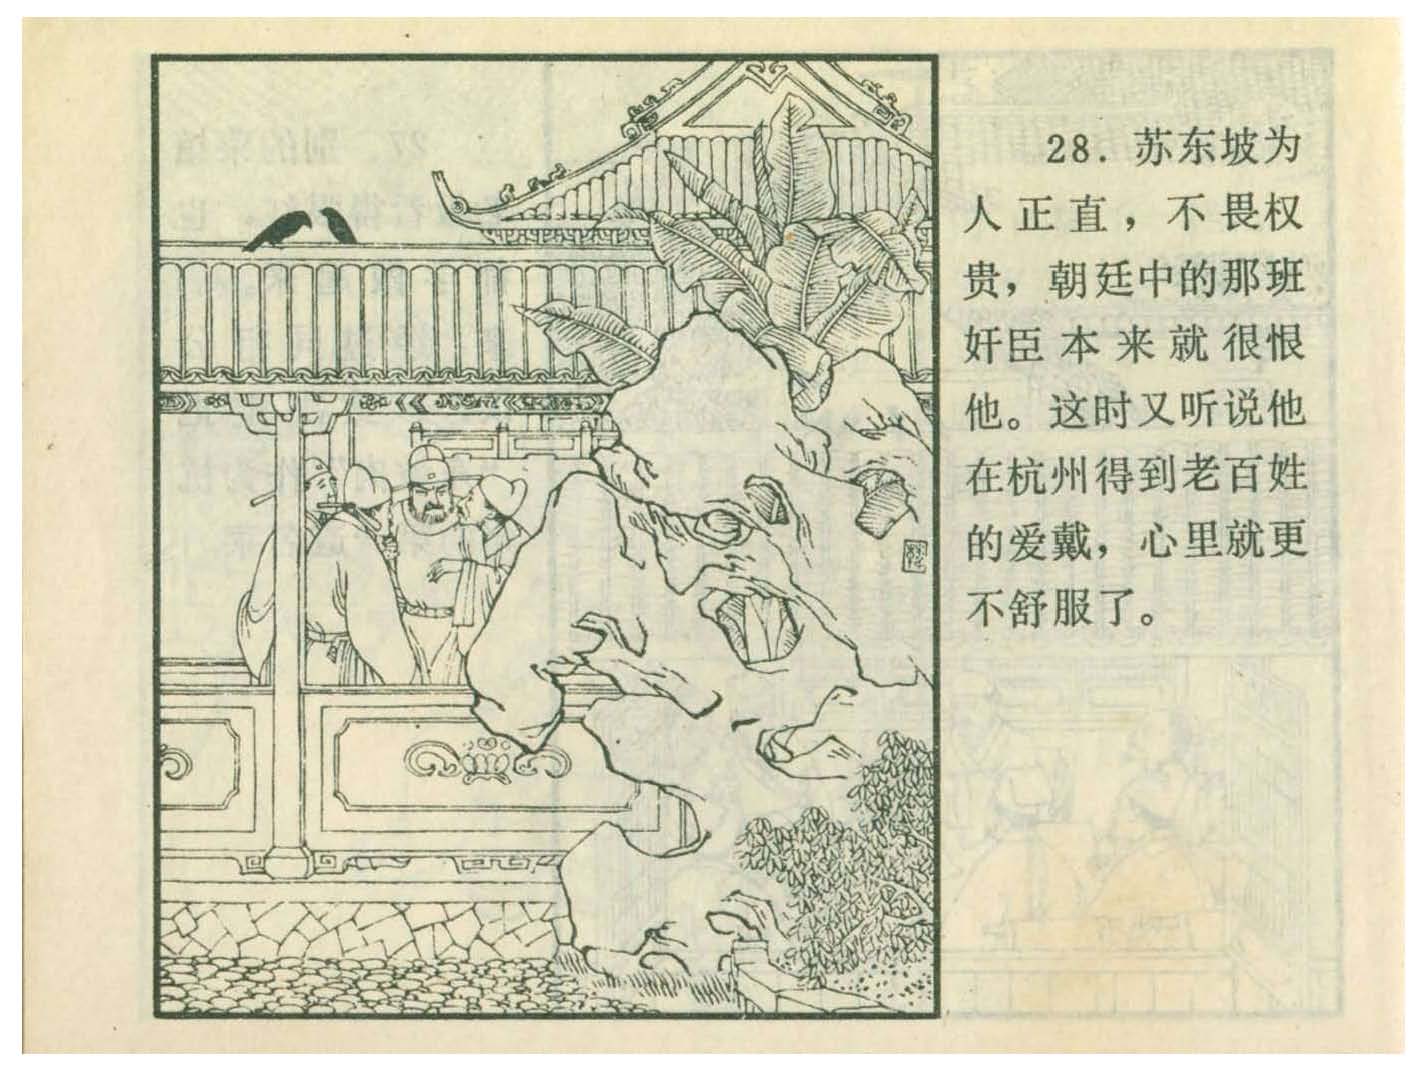 28. 苏东坡为
人正直，不畏权
贵，朝廷中的那班
奸臣本来就很恨
他。这时又听说他
在杭州得到老百姓
的爱戴，心里就更
不舒服了。